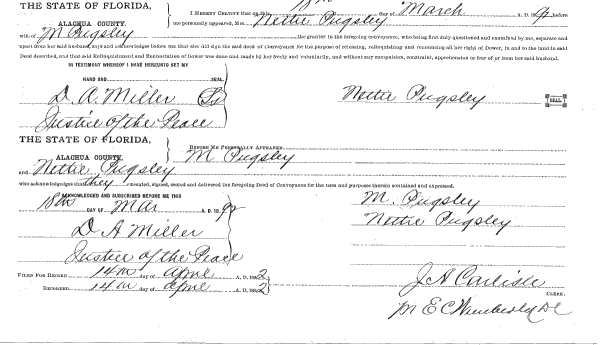 THE STATE OF FLORIDA,
ALACHUA COUNTY.
I HEREBY CERTIFY THAT ON THIS 18th day of March A. D. 92 before
me personally appeared, Mrs. Nettie Pugsley
wife of M Pugsley the grantor in the foregoing conveyance, who being first duly questioned and examined by me, separate and
apart from her said husband, says and acknowledges before me that she did sign the said deed of conveyance for the purpose of releasing, relinquishing and renouncing all her right of Dower, in and to the land in said
Deed described, and that said Relinquishment and Renunciation of Dower was done and made by her freely and voluntarily, and without any compulsion, constraint, apprehension or fear of or from her said husband.
IN TESTIMONY WHEREOF I HAVE HEREUNTO SET MY
HAND AND SEAL.
D. A. Miller
Nettie Pugsley SEAL.
Justice of the Peace
THE STATE OF FLORIDA,
ALACHUA COUNTY.
BEFORE ME PERSONALLY APPEARED
M Pugsley
and Nettie Pugsley
who acknowledges that they executed, signed, sealed and delivered the foregoing Deed of Conveyance for the uses and purposes therein contained and expressed.
ACKNOWLEDGED AND SUBSCRIBED BEFORE ME THIS
18th DAY OF Mar A. D. 1892
M. Pugsley
Nettie Pugsley
D. A Miller
Justice of the Peace
FILED FOR RECORD 14th day of April A. D. 1892
RECORDED 14th day of April A. D. 1892
J A Carlisle
CLERK.